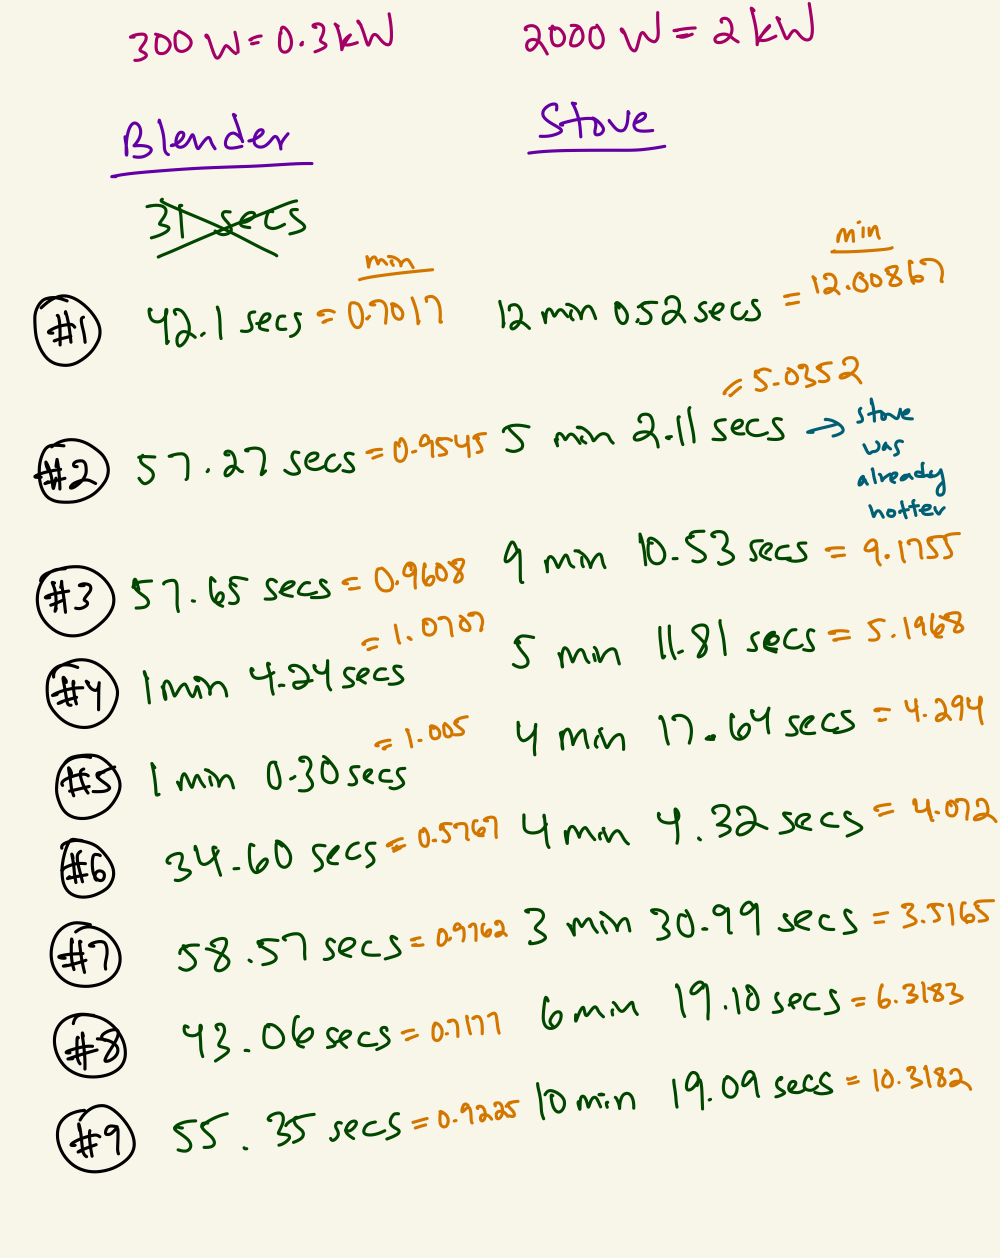 300 W = 0.3 kW 2000 W = 2 kW
Blender Stove
31 secs
min min
#1 42.1 secs = 0.7017 12 min 0.52 secs = 12.00867
#2 57.27 secs = 0.9545 5 min 2.11 secs = 5.0352 → stove
was
already
hotter
#3 57.65 secs = 0.9608 9 min 10.53 secs = 9.1755
#4 1 min 4.24 secs = 1.0707 5 min 11.81 secs = 5.1968
#5 1 min 0.30 secs = 1.005 4 min 17.64 secs = 4.294
#6 34.60 secs = 0.5767 4 min 4.32 secs = 4.072
#7 58.57 secs = 0.9762 3 min 30.99 secs = 3.5165
#8 43.06 secs = 0.7177 6 min 19.10 secs = 6.3183
#9 55.35 secs = 0.9225 10 min 19.09 secs = 10.3182